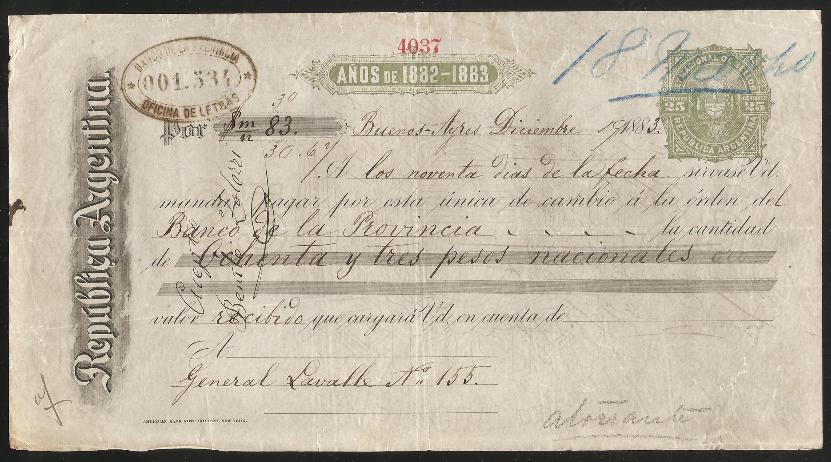 4037
AÑOS DE 1882-1883
BANCO DE LA PROVINCIA
001.534
OFICINA DE LETRAS
CENTAVOS 25
25 CENTAVOS
REPÚBLICA ARGENTINA
República Argentina
30
Por $m/n 83.
30.6
Buenos-Ayres Diciembre 19 1883.
A los noventa dias de la fecha sirvase Vd.
mandar pagar por esta única de cambio á la órden del
Banco de la Provincia la cantidad
de Ochenta y tres pesos nacionales oro
valor recibido que cargará Vd. en cuenta de
A
General Lavalle No. 155.
AMERICAN BANK NOTE COMPANY, NEW YORK.